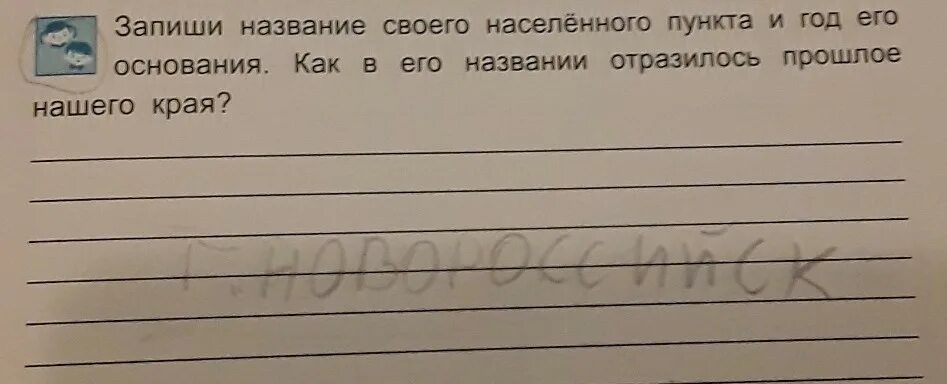 Запиши название своего населённого пункта и год его
основания. Как в его названии отразилось прошлое
нашего края?
Г. НОВОРОССИЙСК